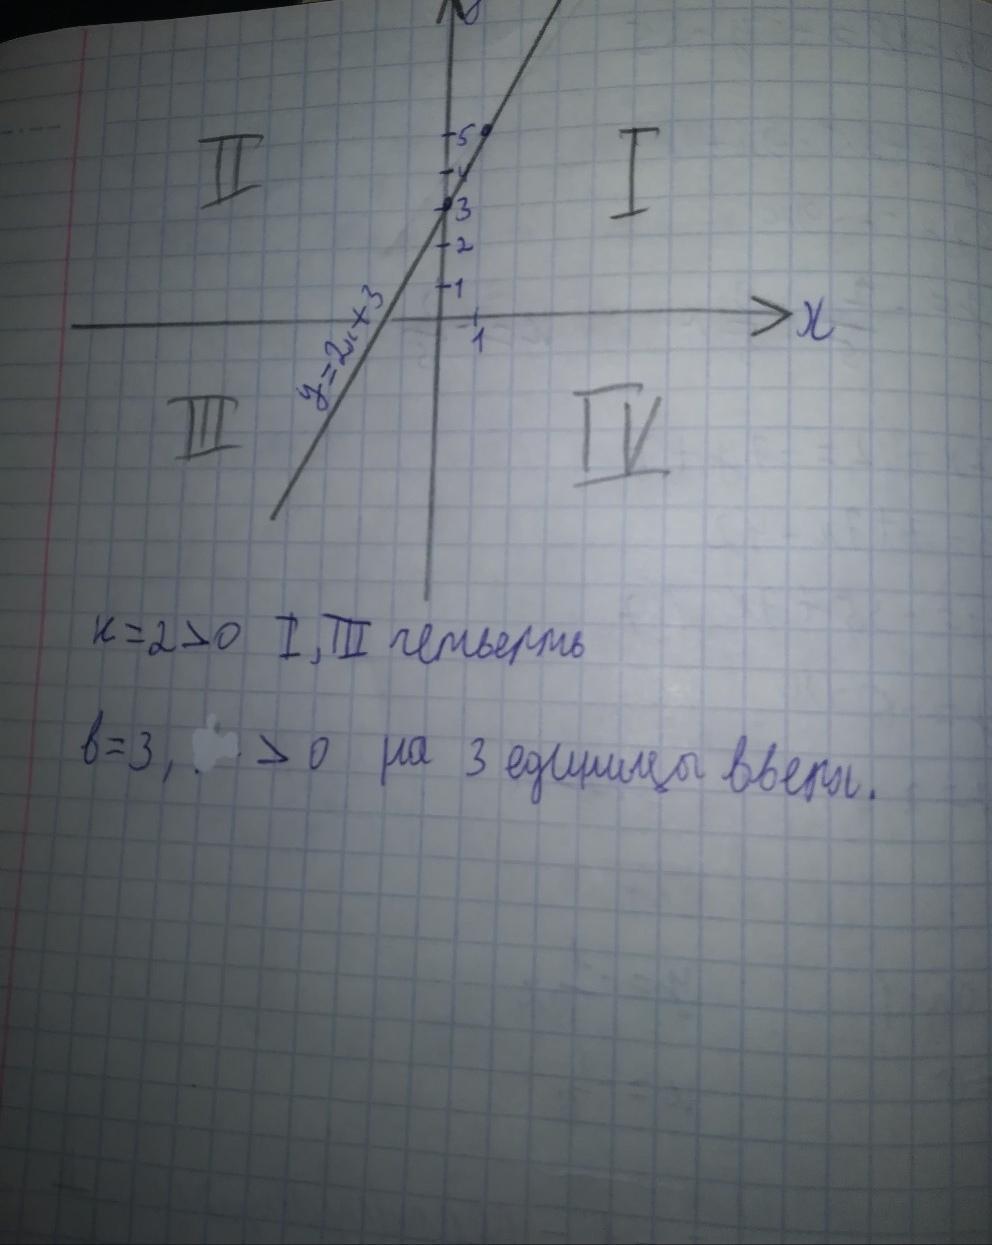 II
I
5
4
3
2
1
1
x
y=2x+3
III
IV
к=2>0 I, III четверть
в=3, >0 на 3 единицы вверх.